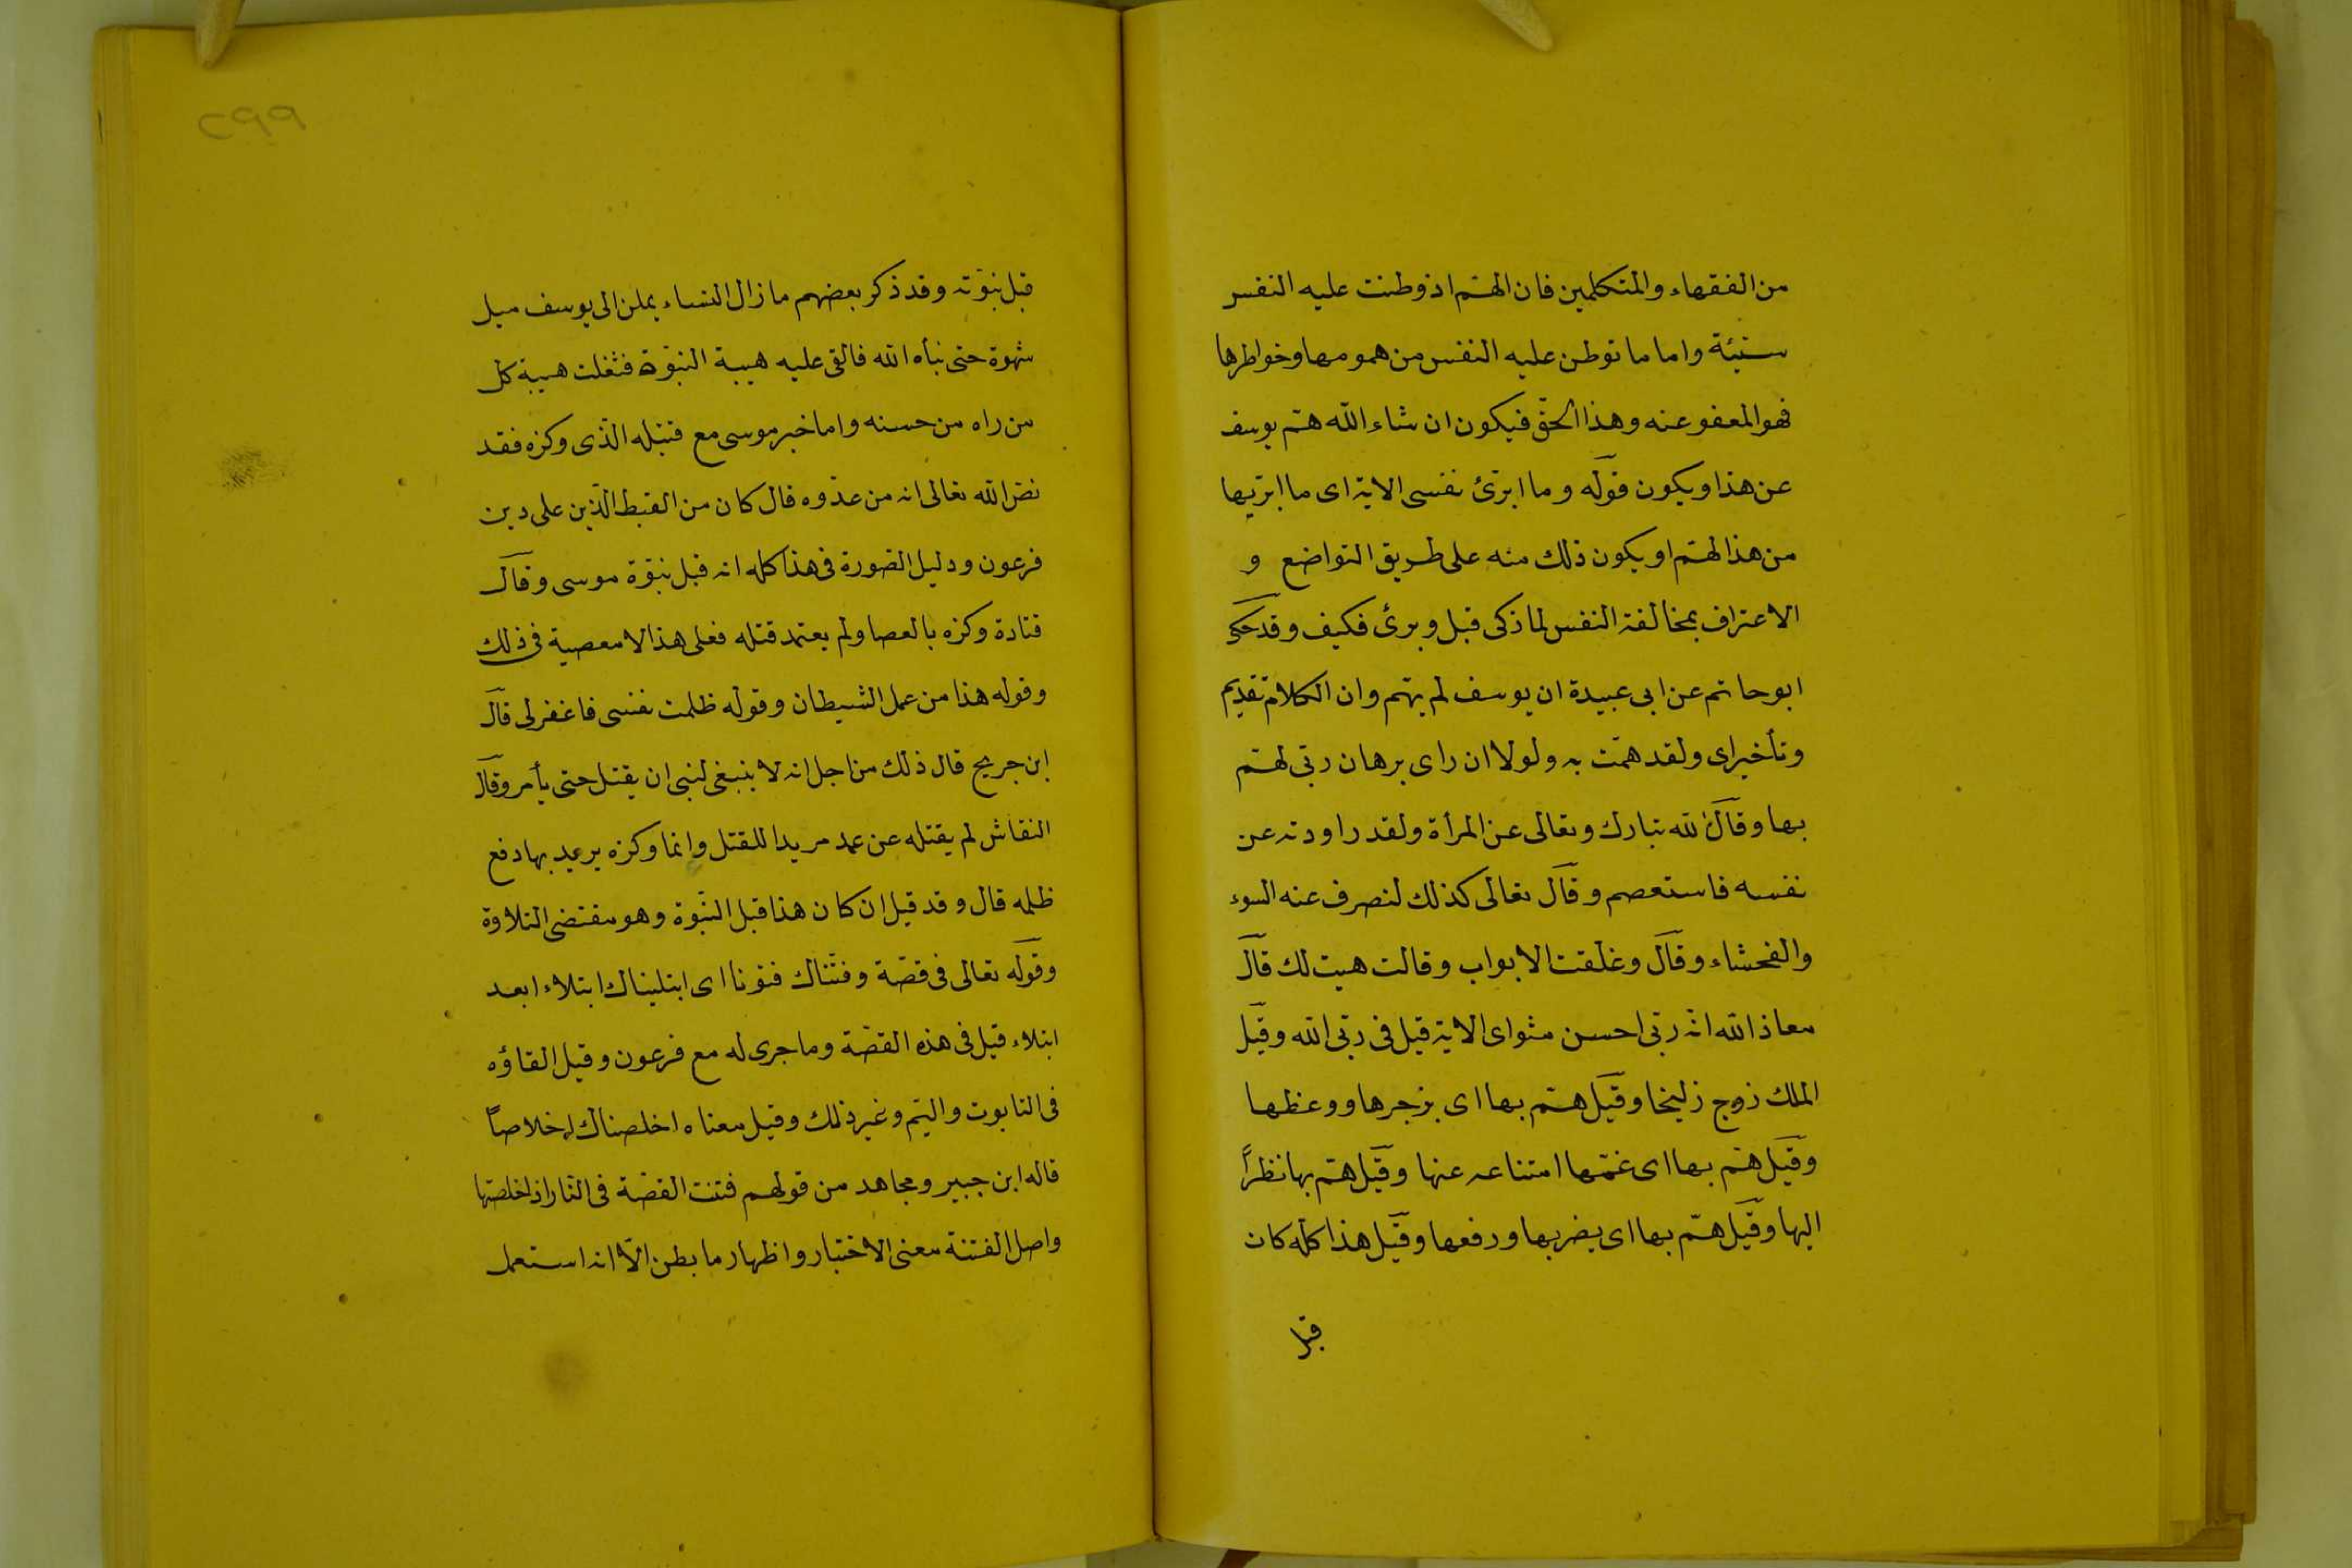 من الفقهاء والمتكلمين فان الهمّ اذ وطنت عليه النفس
سئيّة واما ما توطن عليه النفس من همومها وخواطرها
فهو المعفو عنه وهذا الحقّ فيكون ان شاء الله همّ يوسف
عن هذا ويكون قوله وما ابرّئ نفسى الاية اى ما ابرّيها
من هذا الهمّ او يكون ذلك منه على طريق التواضع و
الاعتراف بمخالفة النفس لما ذكى قبل وبرئ فكيف وقد حكى
ابو حاتم عن ابى عبيدة ان يوسف لم يهم وان الكلام تقديم
وتأخير اى ولقد همّت به ولولا ان راى برهان ربّى لهمّ
بها وقال الله تبارك وتعالى عن المرأة ولقد راودته عن
نفسه فاستعصم وقال تعالى كذلك لنصرف عنه السوء
والفحشاء وقال وغلّقت الابواب وقالت هيت لك قال
معاذ الله انّه ربّى احسن مثواى الاية قيل فى ربّى الله وقيل
الملك زوج زليخا وقيل همّ بها اى بزجرها ووعظها
وقيل همّ بها اى غمّها امتناعه عنها وقيل همّ بها نظراً
اليها وقيل همّ بها اى يضربها ورفعها وقيل هذا كلّه كان
قبل
٢٩٩
قبل نبوّته وقد ذكر بعضهم ما زال النساء يملن الى يوسف ميل
شهوة حتى نبأه الله فالقى عليه هيبة النبوّة فشغلت هيبة كل
من راه من حسنه واما خبر موسى مع قتيله الّذى وكزه فقد
نصّ الله تعالى انه من عدّوه قال كان من القبط الّذين على دين
فرعون ودليل الصّورة فى هذا كله انه قبل نبوّة موسى وقال
قتادة وكزه بالعصا ولم يعتمد قتله فعلى هذا لا معصية فى ذلك
وقوله هذا من عمل الشيطان وقوله ظلمت نفسى فاغفرلى قال
ابن جريج قال ذلك من اجل انه لا ينبغى لنبى ان يقتل حتى يأمر وقال
النقاش لم يقتله عن عمد مريدا للقتل وانما وكزه يريد بها دفع
ظلمه قال وقد قيل ان كان هذا قبل النبّوة وهو مقتضى التلاوة
وقوله تعالى فى قصّة وفتّناك فتونا اى ابتليناك ابتلاء ابعد
ابتلاء قيل فى هذه القصّة وما جرى له مع فرعون وقيل القاؤه
فى التابوت واليّم وغير ذلك وقيل معناه اخلصناك اخلاصاً
قاله ابن جبير ومجاهد من قولهم فتنت القصّة فى النّار اذ اخلصتها
واصل الفتنة معنى الاختبار واظهار ما بطن الّا انه استعمل